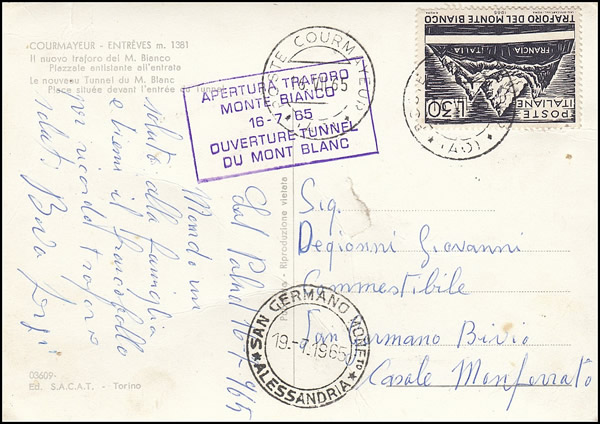 COURMAYEUR - ENTRÈVES m. 1381
Il nuovo traforo del M. Bianco
Piazzale antistante all'entrata
Le nouveau Tunnel du M. Blanc
Place située devant l'entrée du Tunnel
APERTURA TRAFORO
MONTE BIANCO
16-7-65
OUVERTURE TUNNEL
DU MONT BLANC
POSTE COURMAYEUR
(AO)
TRAFORO DEL MONTE BIANCO
1965
FRANCIA
ITALIA
L.30
POSTE
ITALIANE
Dal 16-7-965
Mando un
saluto alla famiglia
e tieni il francobollo
per ricordo traforo
Riproduzione vietata
Sig.
Degionni Giovanni
Commestibile
San Germano Bivio
Casale Monferrato
SAN GERMANO MONFTO
19.-7.1965
ALESSANDRIA
03609-
Ed. S.A.C.A.T. - Torino